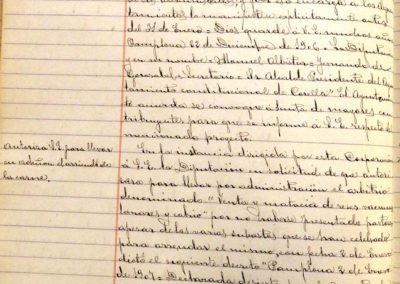 del 31 de Enero = Dios guarde a V.S. muchos años
Pamplona 22 de Diciembre de 1906 = La Diputación
y en su nombre = Manuel Albistur = Fernando de
Gorosabel = Secretario = Sr. Alcalde Presidente del Ayun-
tamiento constitucional de Corella" El Ayuntamien-
to acuerda se convoque a Junta de mayores con-
tribuyentes para que se informe a S.E. respecto al
mencionado proyecto.
Autoriza S.E. para llevar
en admon el arriendo de
la carne.
En la instancia dirigida por esta Corporación
á S.E. la Diputacion en solicitud de que autori-
zara para llevar por administración el arbitrio
denominado "Venta y matacia de reses vacunas
lanares y cabrio" por no haberse presentado postor
apesar de las varias subastas que se han celebrado
para arrendar el mismo, con fecha 2 de Enero
dictó el siguiente decreto "Pamplona 2 de Enero
de 1907 = Declarada desierta